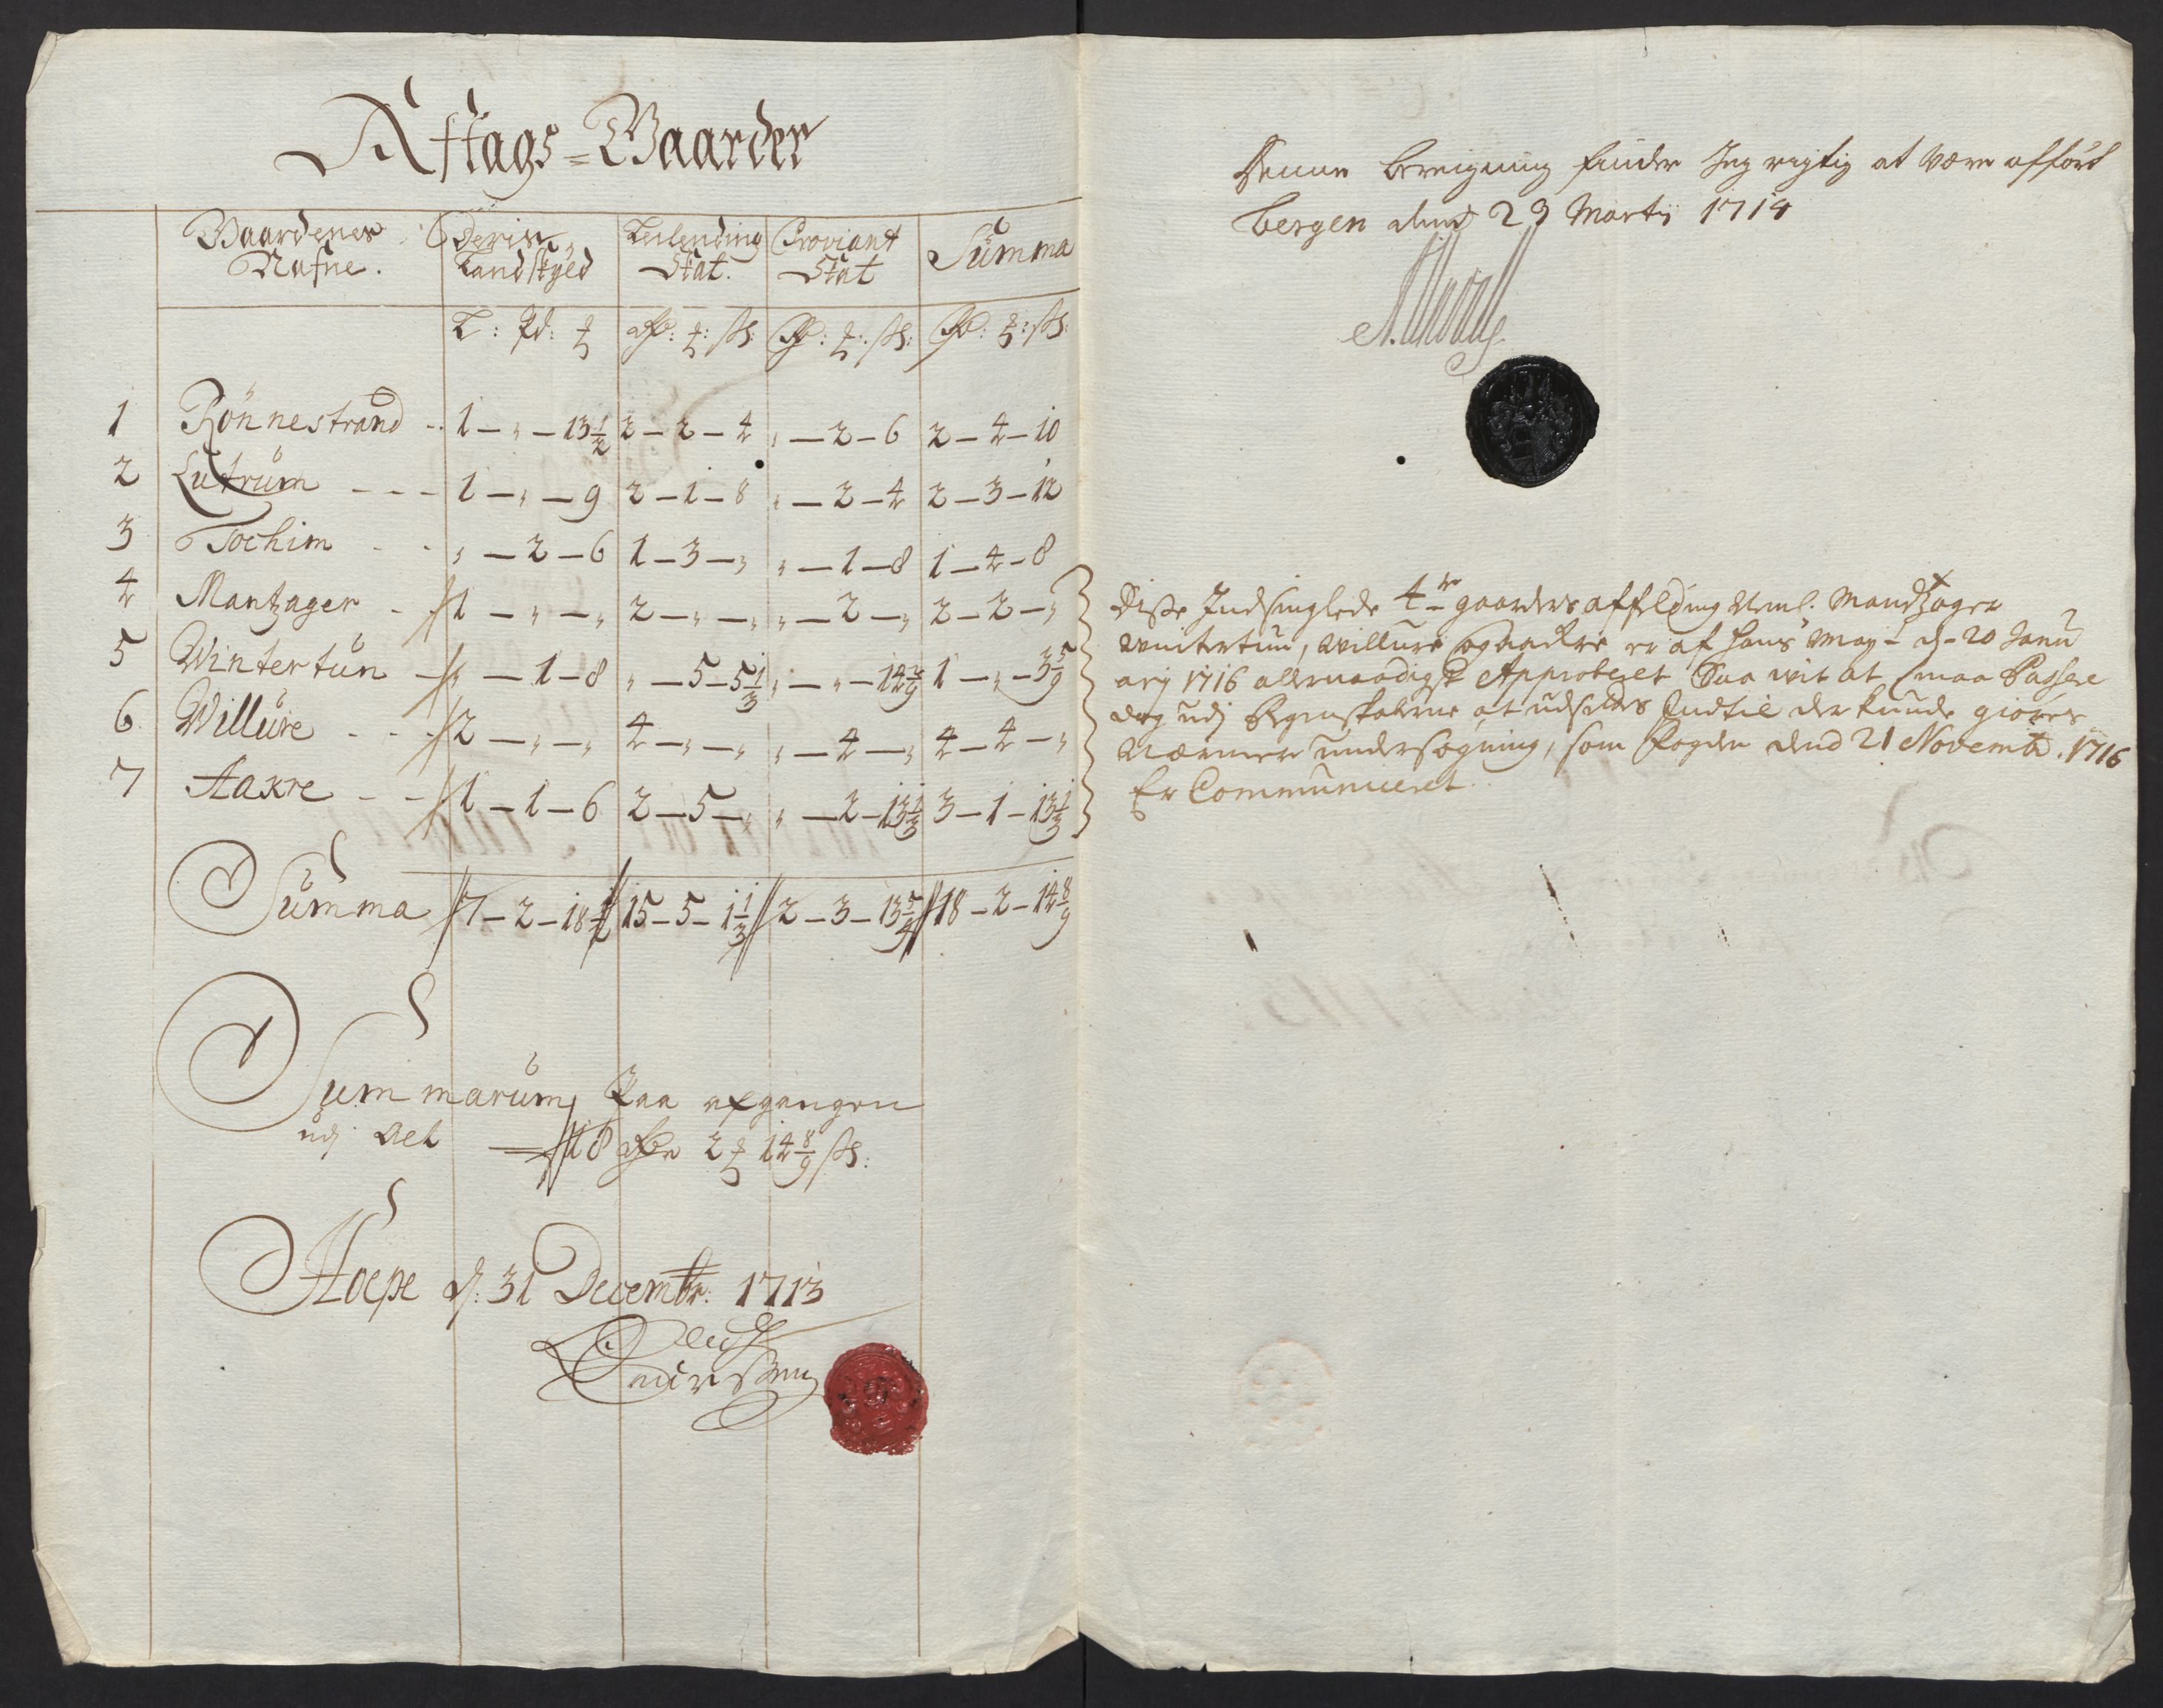 Aftags=Gaarder
Gaardenes Nafne. | Deris Landskyld | Leilending Skat. | Proviant Skat | Summa
L: Pd: ℔ | Rdr: ℔: ß: | Rd: ℔: ß: | Rd: ℔: ß:
1 Rönnestrand -- 1 - " - 13 1/2 | 2 - 2 - 4 | " - 2 - 6 | 2 - 4 - 10
2 Lutrum --- 1 - " - 9 | 2 - 1 - 8 | " - 2 - 4 | 2 - 3 - 12
3 Tochim -- " - 2 - 6 | 1 - 3 - " | " - 1 - 8 | 1 - 4 - 8
4 Mantzager -- 1 - " - " | 2 - " - " | " - 2 - " | 2 - 2 - "
5 Wintertun - " - 1 - 8 | " - 5 - 5 1/3 | " - " - 14 2/9 | 1 - " - 3 5/9
6 Willure --- 2 - " - " | 4 - " - " | " - 4 - " | 4 - 4 - "
7 Aakre -- 1 - 1 - 6 | 2 - 5 - " | " - 2 - 13 1/3 | 3 - 1 - 13 1/3
Summa 7 - 2 - 18 1/2 | 15 - 5 - 1 1/3 | 2 - 3 - 13 5/9 | 18 - 2 - 14 8/9
Summarum, Paa afgangen
udj det 18 Rdr 2 ℔ 14 8/9 ß:
Hoepe d: 31 Decembr: 1713
Denne beregning finder Jeg rigtig at være afført
bergen dend 29 Martij 1714
Disse Indsinglede 4re gaarders affelding Neml. Mandzager
Wintertun, Willure og aakre er af hans May- d- 20 Janu
arij 1716 allernaadigst Approberet Saa vit at maa Passere
dog udj Regenskaberne at udsettes Indtil der kunde giøres
Nærmere undersøgning, som Fogden dend 21 Novemb. 1716
Er Communiceret.